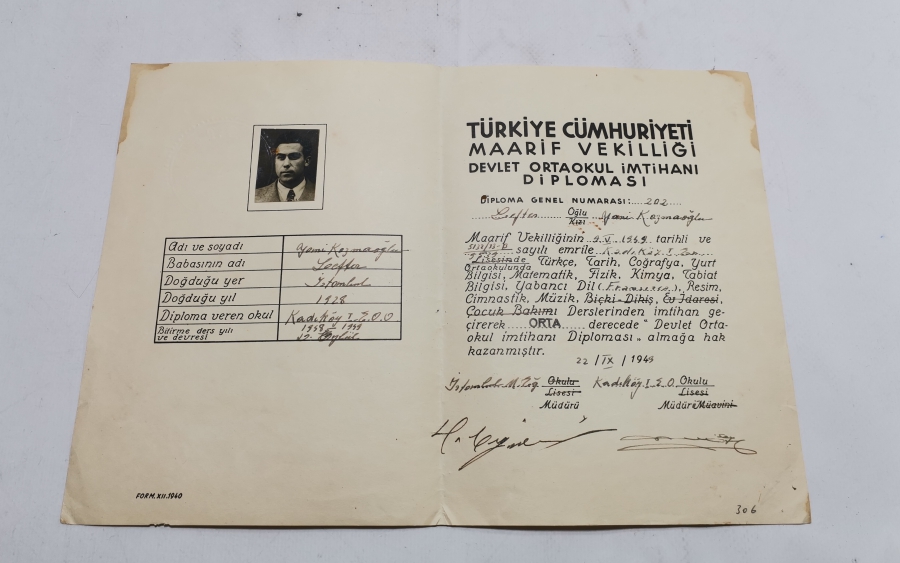 Adı ve soyadı Yani Kazmaoğlu
Babasının adı Lefter
Doğduğu yer İstanbul
Doğduğu yıl 1928
Diploma veren okul Kadıköy I. E.O.O
Bitirme ders yılı ve devresi 1948 1949 Eylül
FORM.XII.1940
TÜRKİYE CÜMHURİYETİ
MAARİF VEKİLLİĞİ
DEVLET ORTAOKUL İMTİHANI
DİPLOMASI
DİPLOMA GENEL NUMARASI: 202
Lefter Oğlu Kızı Yani Kazmaoğlu
Maarif Vekilliğinin V 1949 tarihli ve
sayılı emrile Kadıköy I.
Lisesinde Türkçe, Tarih, Coğrafya, Yurt
Ortaokulunda
Bilgisi, Matematik, Fizik, Kimya, Tabiat
Bilgisi, Yabancı Dil (Fransızca), Resim,
Cimnastik, Müzik, Biçki-Dikiş, Ev İdaresi,
Çocuk Bakımı Derslerinden imtihan ge-
çirerek ORTA derecede " Devlet Orta-
okul imtihanı Diploması „ almağa hak
kazanmıştır.
22 / IX / 1949
Okulu Kadıköy I. E.O. Okulu
Lisesi Lisesi
Müdürü Müdürü Muavini
306